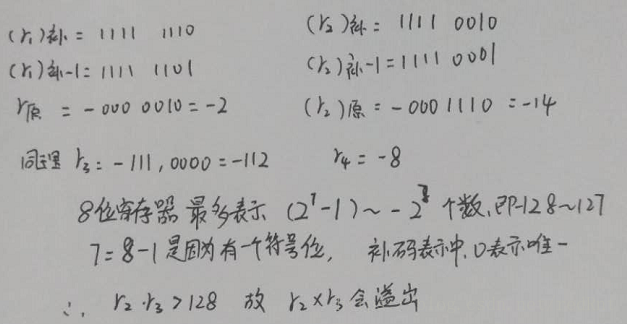 (r₁)补 = 1111 1110 (r₂)补 = 1111 0010
(r₁)补-1 = 1111 1101 (r₂)补-1 = 1111 0001
r原 = -000 0010 = -2 (r₂)原 = -000 1110 = -14
同理 r₃ = -111,0000 = -112 r₄ = -8
8位寄存器 最多表示 (2⁷-1) ~ -2⁷ 个数,即-128~127
7=8-1是因为有一个符号位, 补码表示中,0表示唯一
∴ r₂·r₃>128 故 r₂×r₃会溢出